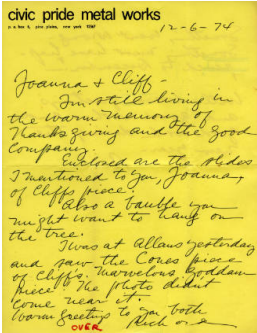 civic pride metal works
p. o. box 6, pine plains, new york
12-6-74
Joanna & Cliff -
I'm still living in
the warm memory of
Thanksgiving and the good
company.
Enclosed are the slides
I mentioned to you, Joanna,
of Cliff's piece.
Also a bauble you
might want to hang on
the tree.
I was at Allans yesterday
and saw the Cones piece
of Cliff's. Marvelous, goddam
piece. The photo didn't
come near it.
Warm greeting to you both
OVER